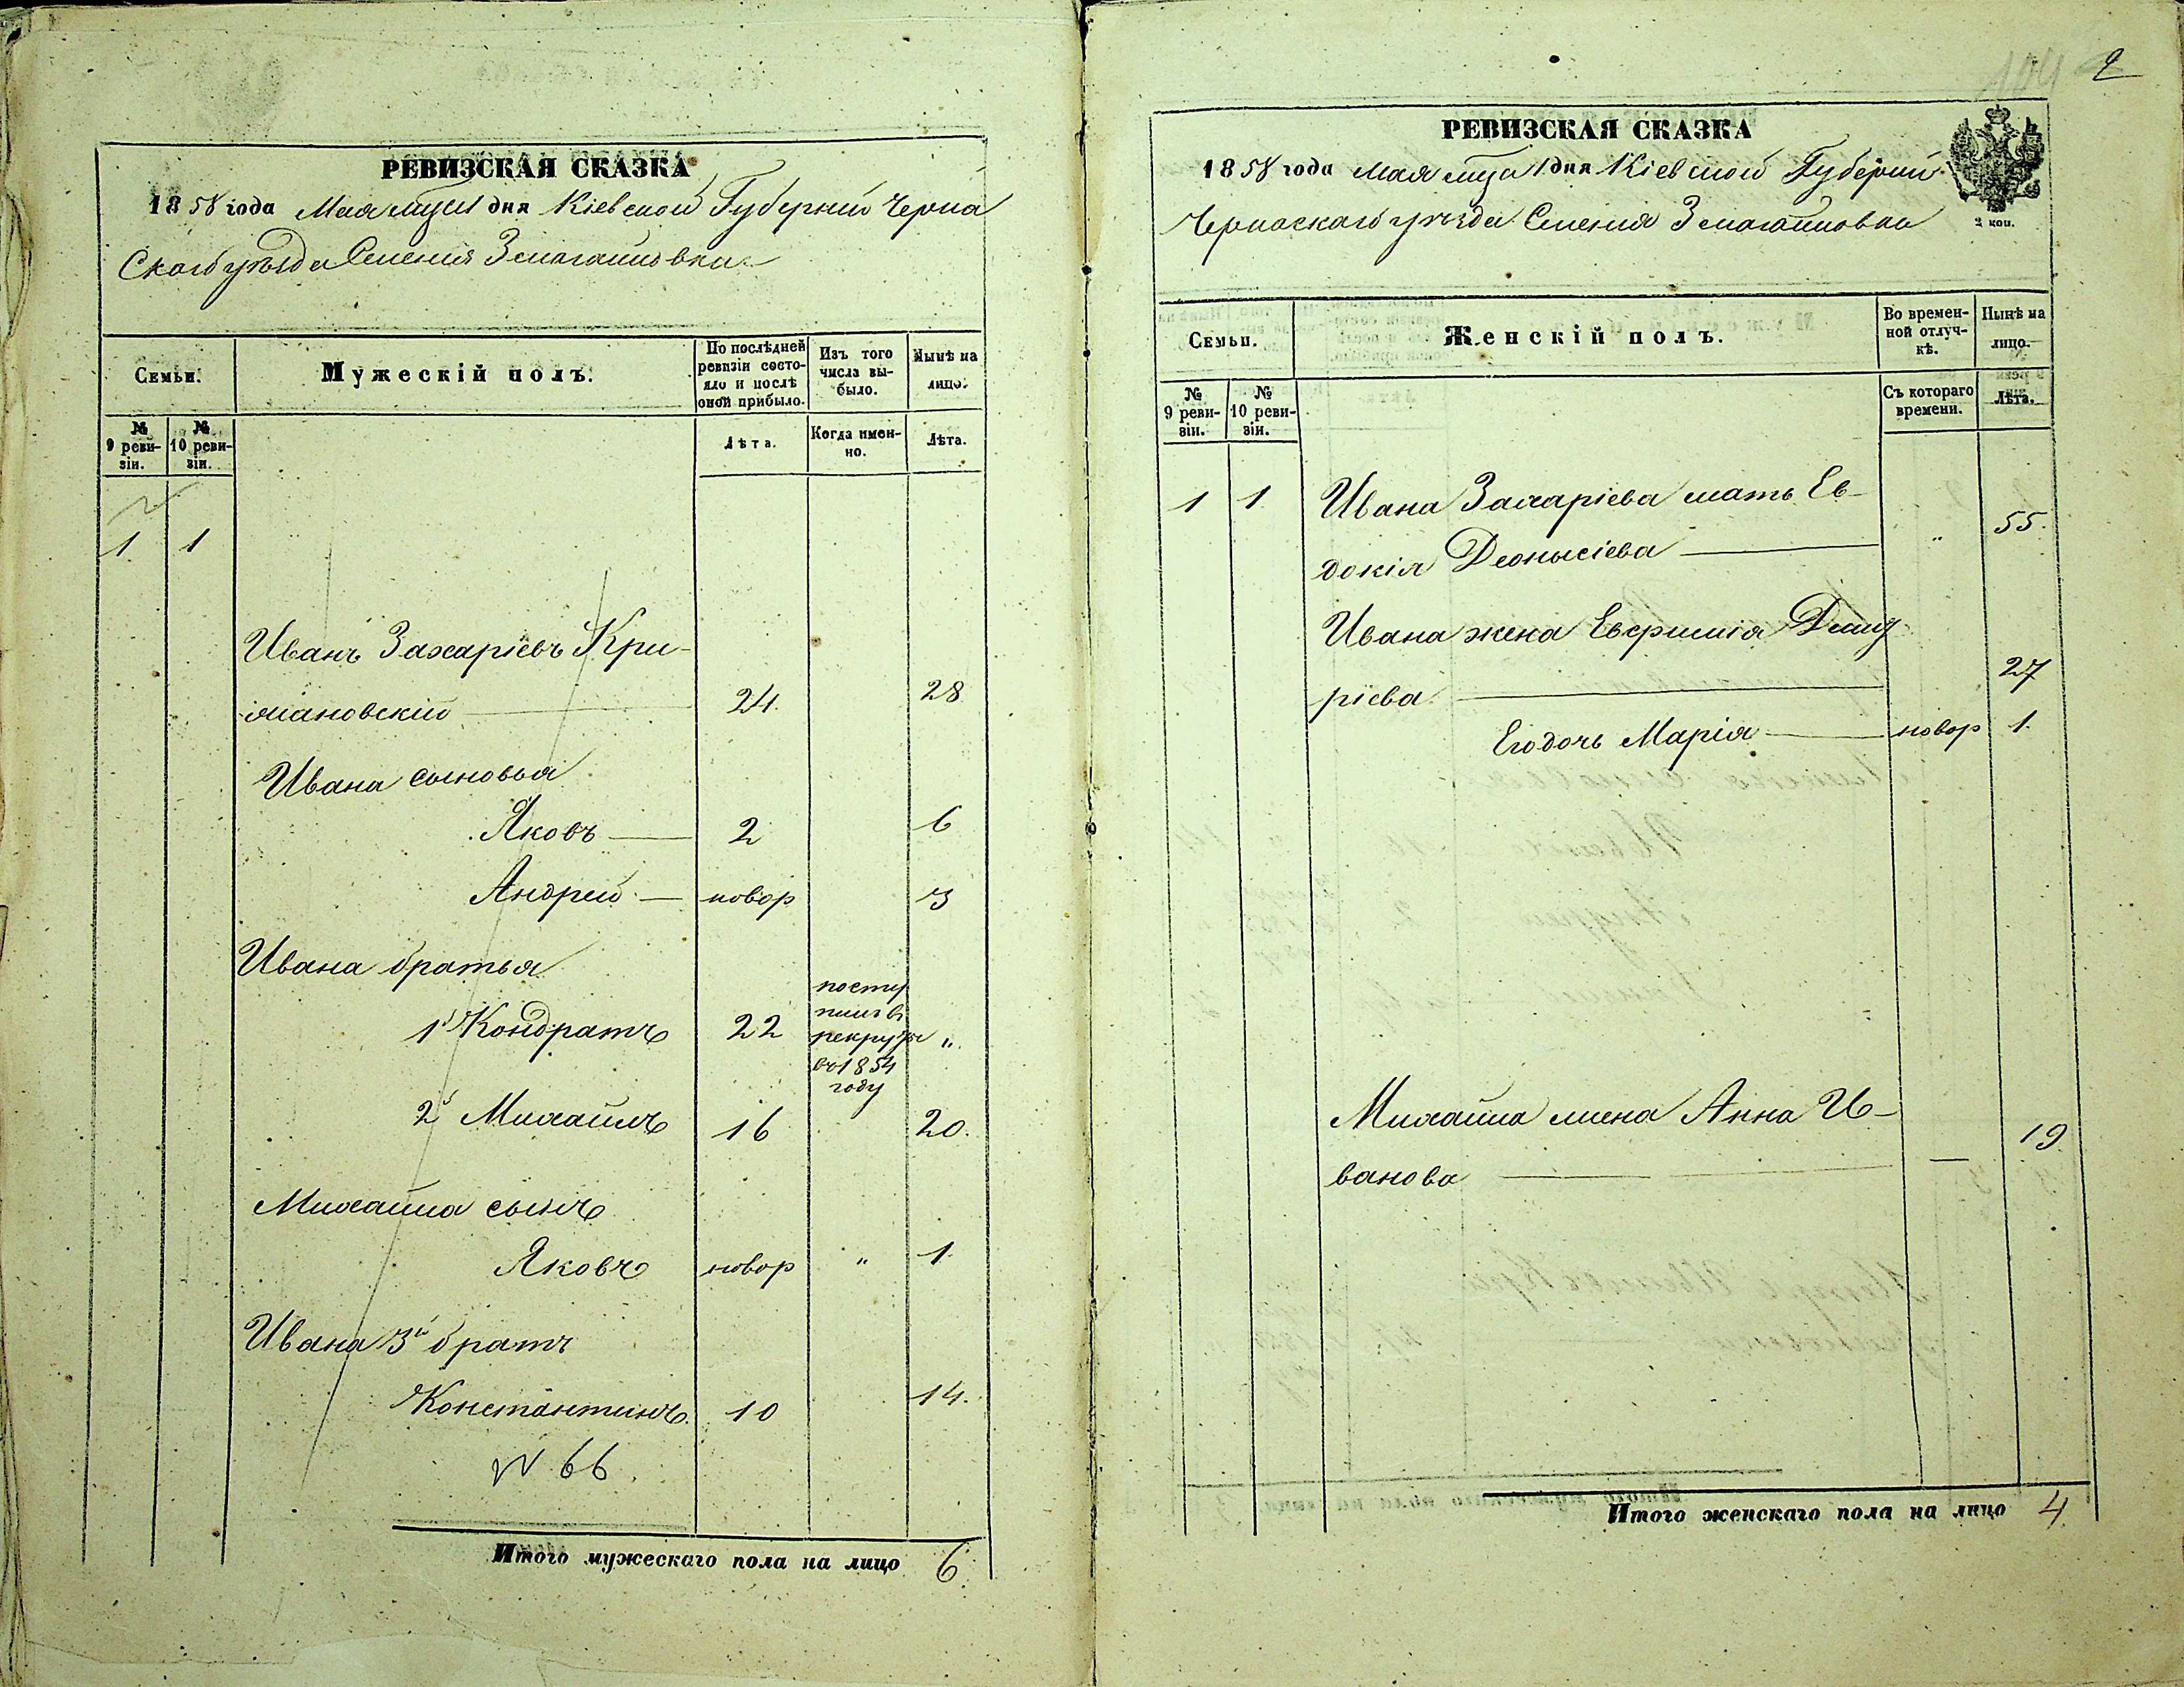 РЕВИЗСКАЯ СКАЗКА
1858 года Мая мца 1 дня Кіевской Губерніи Черка
Скаго уѣзда Селенія
Семьи.
Мужескій полъ.
По послѣдней ревизіи состояло и послѣ оной прибыло.
Изъ того числа выбыло.
Нынѣ на лицо.
№ 9 ревизіи.
№ 10 ревизіи.
Лѣта.
Когда именно.
Лѣта.
1 1
Иванъ Захаріевъ Кри-
жановскій 24 28
Ивана сыновья
Яковъ 2 6
Андрей новор 3
Ивана братья
1й Кондратъ 22 посту
пилъ в
рекруты "
въ 1854
году
2й Михаилъ 16 20.
Михаила сынъ
Яковъ новор " 1
Ивана 3й братъ
Константинъ 10 14.
№ 66
Итого мужескаго пола на лицо 6
2
РЕВИЗСКАЯ СКАЗКА
1858 года мая мца 1 дня Кіевской Губерніи
Черкаскаго уѣзда Селенія
2 коп.
Семьи.
Женскій полъ.
Во временной отлучкѣ.
Нынѣ на лицо.
№ 9 ревизіи.
№ 10 ревизіи.
Съ котораго времени.
Лѣта.
1 1 Ивана Захаріева мать Ев-
докія Деонысіева " 55.
Ивана жена Евфримія Дмит
ріева 27
Его дочь Марія новор 1.
Михаила жена Анна И-
ванова 19
Итого женскаго пола на лицо 4